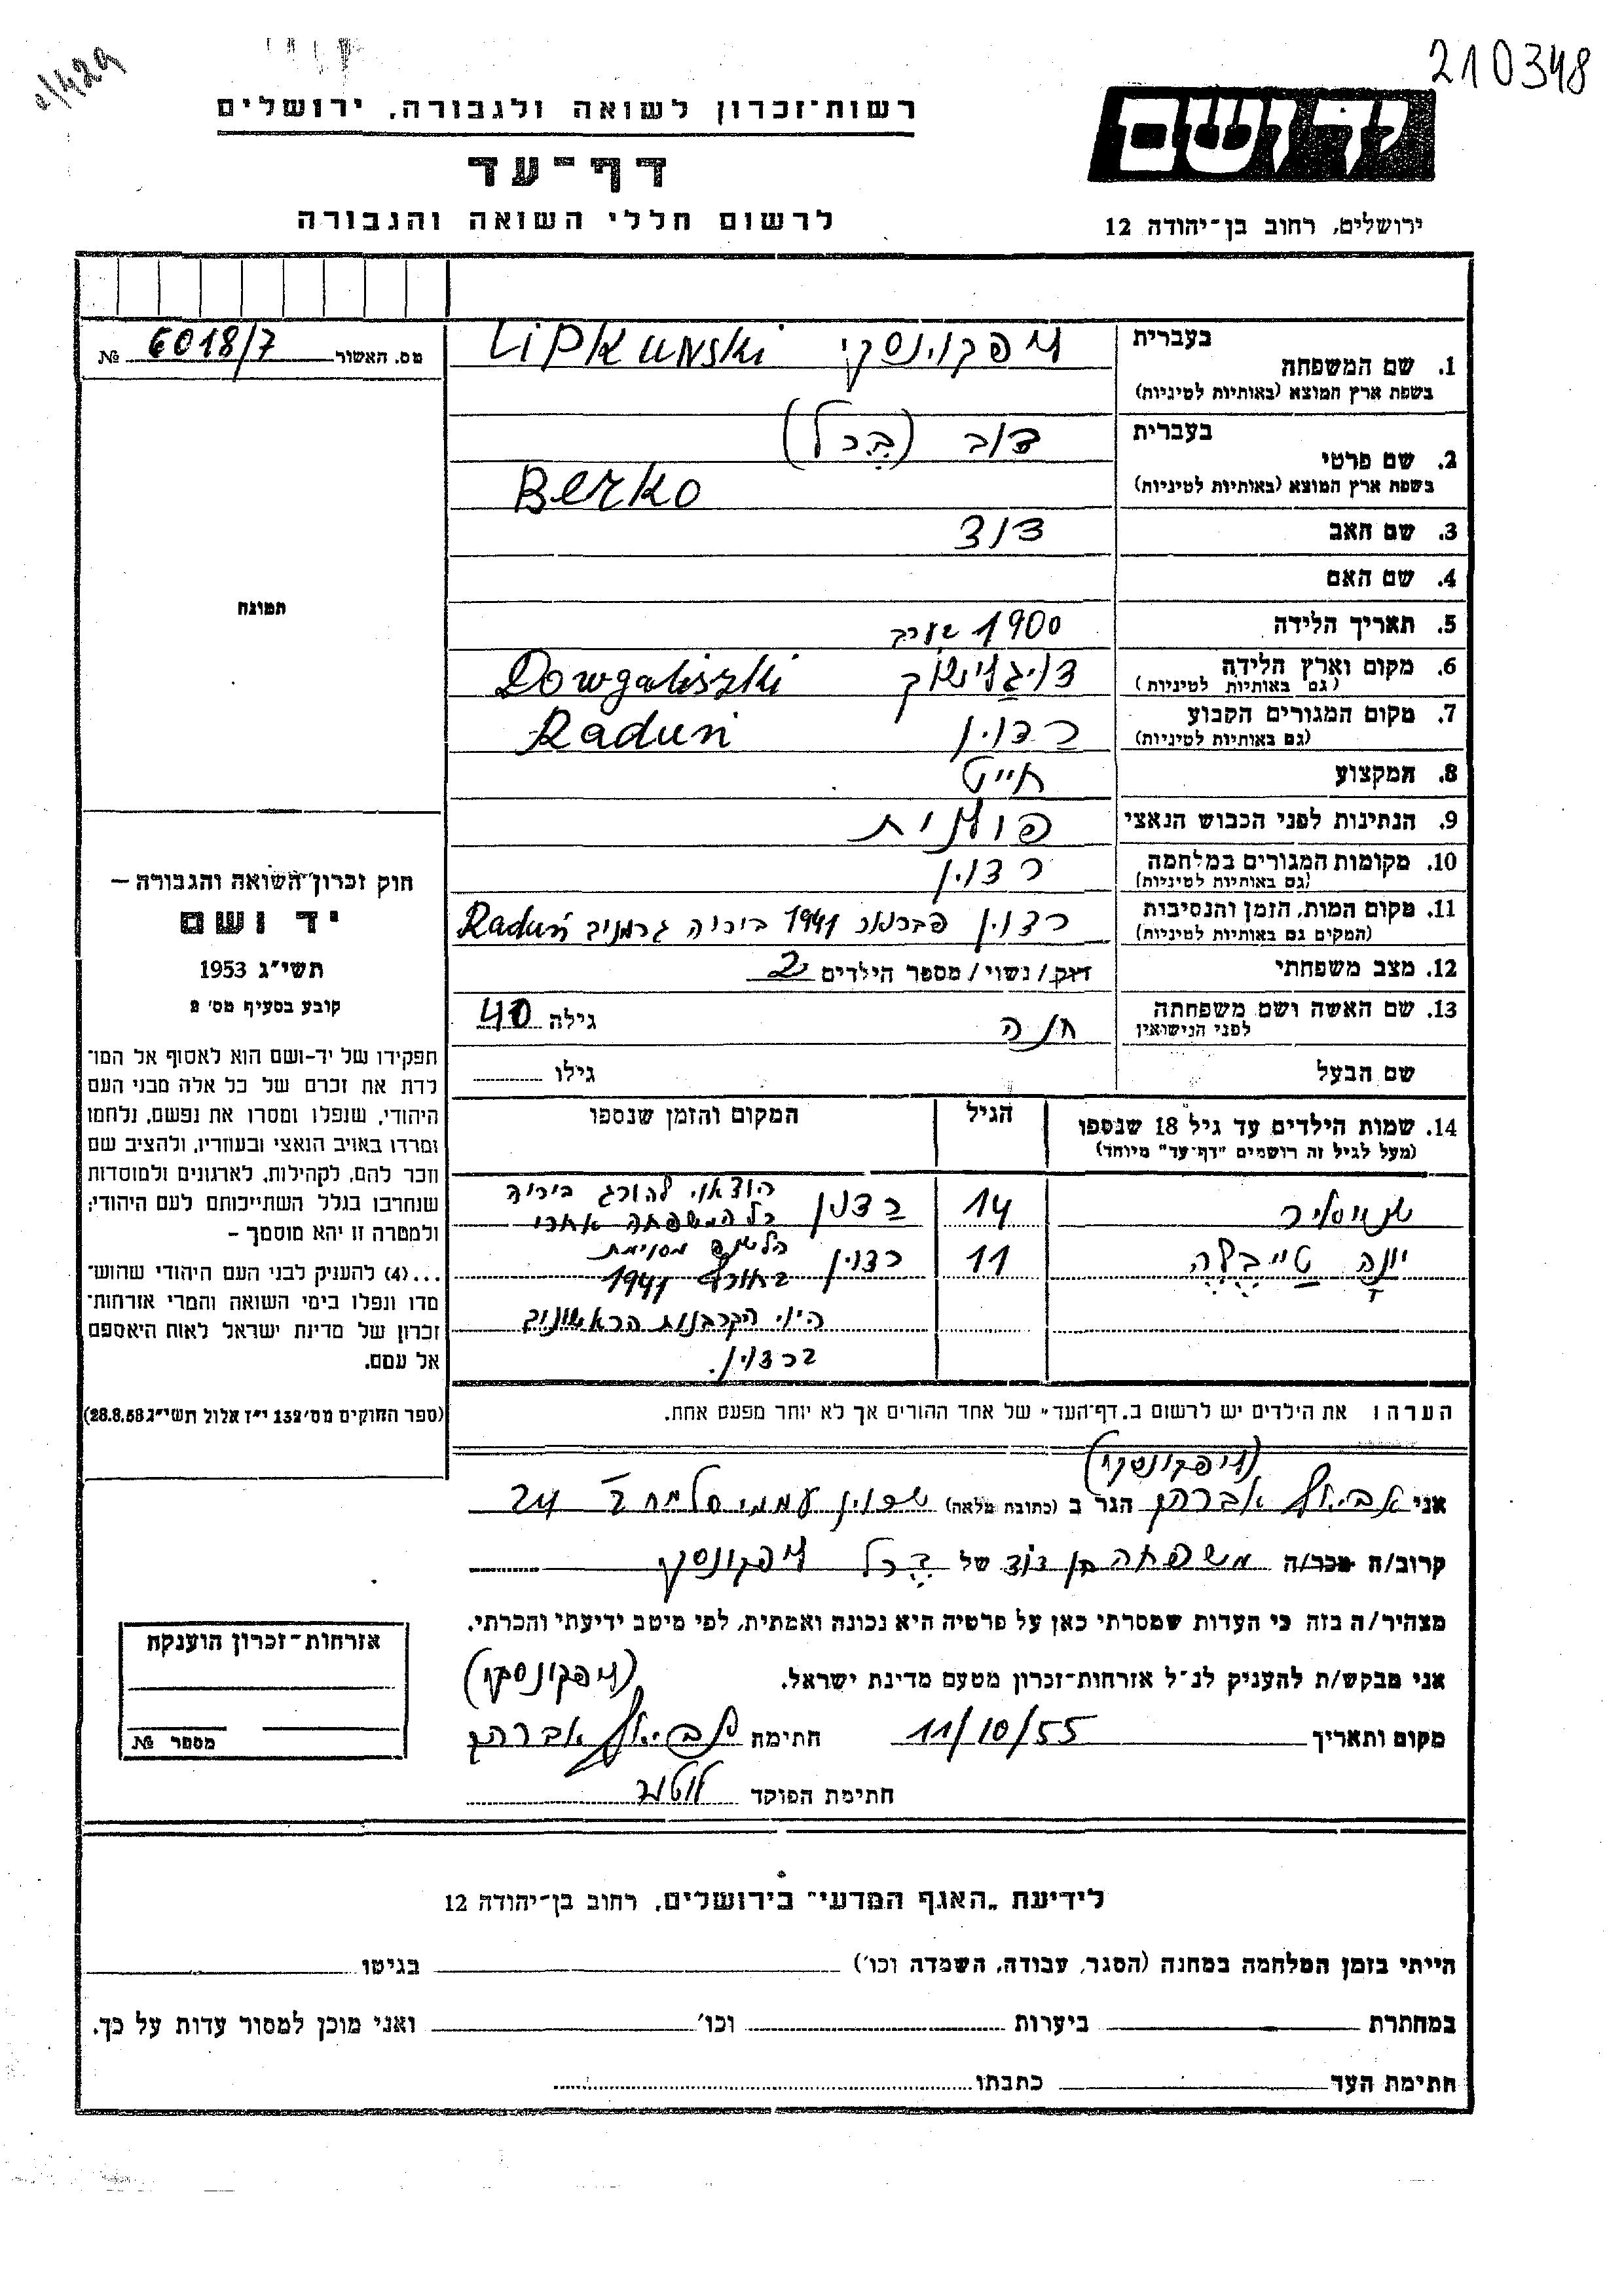 210348
יד ושם
רשות־זכרון לשואה ולגבורה, ירושלים
דף־עד
לרשום חללי השואה והגבורה
ירושלים, רחוב בן־יהודה 12
מס. האשור 6018/7 №
1. שם המשפחה
בעברית ליפקונסקי Lipkunski
בשפת ארץ המוצא (באותיות לטיניות)
2. שם פרטי
בעברית דוב
בשפת ארץ המוצא (באותיות לטיניות) Berko
3. שם האב דוד
4. שם האם
5. תאריך הלידה 1900
6. מקום וארץ הלידה Dowgaliszki
(גם באותיות לטיניות)
7. מקום המגורים הקבוע רדוין Raduń
(גם באותיות לטיניות)
8. המקצוע חייט
9. הנתינות לפני הכבוש הנאצי פולנית
10. מקומות המגורים במלחמה רדוין
(גם באותיות לטיניות)
11. מקום המות, הזמן והנסיבות רדוין פברואר 1941 ביריה Raduń
(המקום גם באותיות לטיניות)
12. מצב משפחתי רווק/נשוי/מספר הילדים 2
13. שם האשה ושם משפחתה חנה גילה 40
לפני הנישואין
שם הבעל גילו
14. שמות הילדים עד גיל 18 שנספו הגיל המקום והזמן שנספו
(מעל לגיל זה רושמים "דף־עד" מיוחד)
14 רדוין הוצאו להורג ביריה
כל המשפחה אחרי
יונה טייבלה 11 רדוין
בחורף 1941
היו הקרבנות הראשונים
ברדוין.
הערה: את הילדים יש לרשום ב„דף־העד" של אחד ההורים אך לא יותר מפעם אחת.
תמונה
חוק זכרון השואה והגבורה —
יד ושם
תשי"ג 1953
קובע בסעיף מס' 2
תפקידו של יד־ושם הוא לאסוף אל המו־
לדת את זכרם של כל אלה מבני העם
היהודי, שנפלו ומסרו את נפשם, נלחמו
ומרדו באויב הנאצי ובעוזריו, ולהציב שם
וזכר להם, לקהילות, לארגונים ולמוסדות
שנחרבו בגלל השתייכותם לעם היהודי;
ולמטרה זו יהא מוסמך —
...(4) להעניק לבני העם היהודי שהוש־
מדו ונפלו בימי השואה והמרי אזרחות־
זכרון של מדינת ישראל לאות היאספם
אל עמם.
(ספר החוקים מס' 132 י"ז אלול תשי"ג 28.8.53)
(ליפקונסקי)
אני אביאלי אברהם הגר ב (כתובת מלאה) שכון עממי 24
קרוב/ה מכר/ה משפחה בן דוד של ברל ליפקונסקי
מצהיר/ה בזה כי העדות שמסרתי כאן על פרטיה היא נכונה ואמתית, לפי מיטב ידיעתי והכרתי.
אני מבקש/ת להעניק לנ"ל אזרחות־זכרון מטעם מדינת ישראל.
(ליפקונסקי)
מקום ותאריך 11/10/55 חתימה אביאלי אברהם
חתימת הפוקד
אזרחות־זכרון הוענקה
מספר №
לידיעת „האגף המדעי" בירושלים, רחוב בן־יהודה 12
הייתי בזמן המלחמה במחנה (הסגר, עבודה, השמדה וכו') בגיטו
במחתרת ביערות וכו' ואני מוכן למסור עדות על כך.
חתימת העד כתבתו